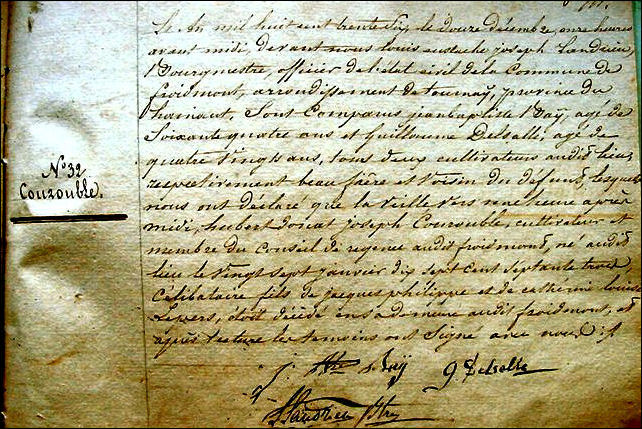 L'An mil huit cent trente six, le douze décembre, onze heures
avant midi, devant nous Louis Eustache Joseph Landrieu,
Bourgmestre, officier de l'état civil de la Commune de
froidmont, arrondissement de tournay, province du
hainaut, Sont Comparus jean baptiste Daÿ, agé de
Soixante quatre ans et Guillaume Delsalle, agé de
quatre Vingts ans, tous deux cultivateurs audit lieu,
N.° 32
Courouble.
respectivement beau frère et Voisin du défunt, lesquels
nous ont déclaré que la veille vers une heure après
midi, hubert Donat joseph Courouble, cultivateur et
membre du Conseil de regence audit froidmont, né audit
lieu le Vingt sept janvier dix sept cent Septante trois
Célibataire fils de jacques philippe et de catherine louise
Lepers, étoit décédé en sa demeure audit froidmont, et
après lecture les temoins ont Signé avec nous.
j. Bte Daÿ G Delsalle
Landrieu